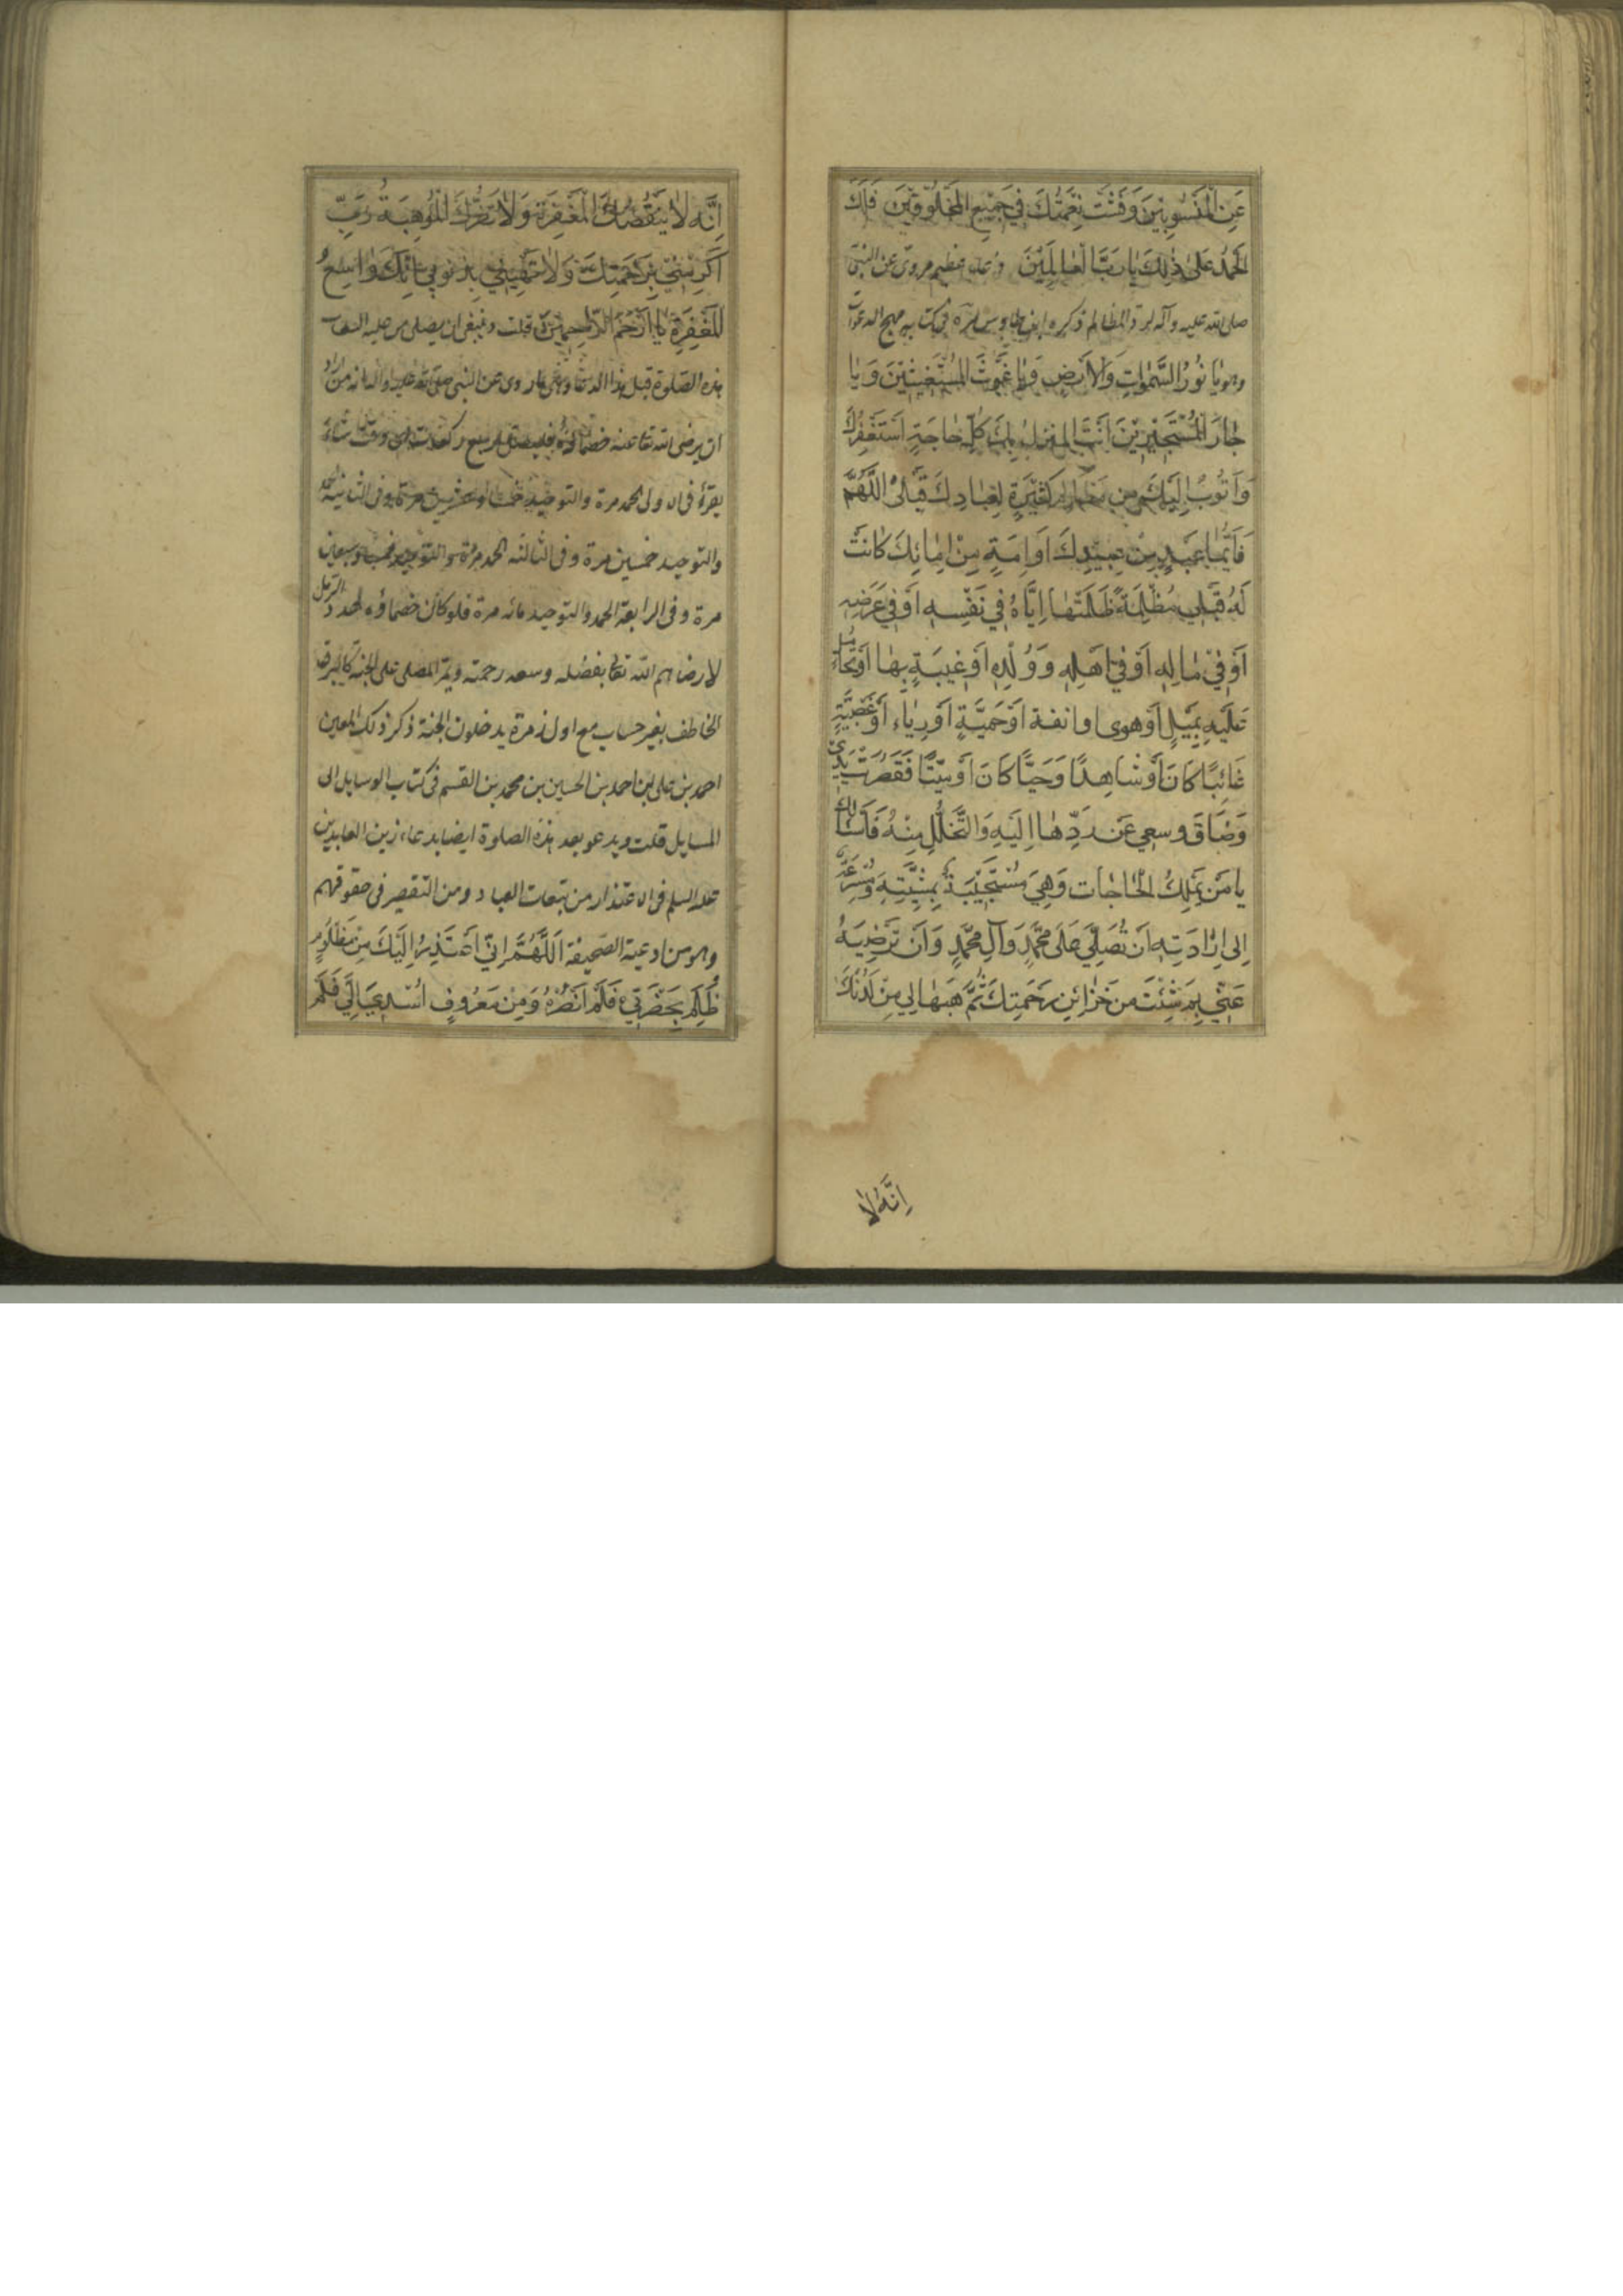 عَنِ الْمَنْسُوبِينَ وَفَشَتْ نِعْمَتُكَ فِي جَمِيعِ الْمَخْلُوقِينَ فَلَكَ
الْحَمْدُ عَلَى ذٰلِكَ يَا رَبَّ الْعَالَمِينَ دعاء عظيم مروى عن النبى
صلى الله عليه وآله لرد المظالم ذكره ابن طاوس ره فى كتابه مهج الدعوات
وهو يَا نُورَ السَّمٰوَاتِ وَالْأَرْضِ وَيَا غَوْثَ الْمُسْتَغِيثِينَ وَيَا
جَارَ الْمُسْتَجِيرِينَ أَنْتَ الْمُنْزَلُ بِكَ كُلُّ حَاجَةٍ أَسْتَغْفِرُكَ
وَأَتُوبُ إِلَيْكَ مِنْ مَظَالِمَ كَثِيرَةٍ لِعِبَادِكَ قِبَلِي اللَّهُمَّ
فَأَيُّمَا عَبْدٍ مِنْ عَبِيدِكَ أَوْ أَمَةٍ مِنْ إِمَائِكَ كَانَتْ
لَهُ قِبَلِي مَظْلِمَةٌ ظَلَمْتُهَا إِيَّاهُ فِي نَفْسِهِ أَوْ فِي عِرْضِهِ
أَوْ فِي مَالِهِ أَوْ فِي أَهْلِهِ وَوُلْدِهِ أَوْ غِيبَةٍ بِهَا أَوْ تَحَامُلٍ
عَلَيْهِ بِمَيْلٍ أَوْ هوى او انفة أَوْ حَمِيَّةٍ أَوْ رِيَاءٍ أَوْ عَصَبِيَّةٍ
غَائِبًا كَانَ أَوْ شَاهِدًا وَحَيًّا كَانَ أَوْ مَيِّتًا فَقَصُرَتْ يَدِي
وَضَاقَ وسعي عَنْ رَدِّهَا إِلَيْهِ وَالتَّحَلُّلِ مِنْهُ فَأَسْأَلُكَ
يَا مَنْ يَمْلِكُ الْحَاجَاتِ وَهِيَ مُسْتَجِيبَةٌ بِمَشِيَّتِهِ وَمُسْرِعَةٌ
إِلَى إِرَادَتِهِ أَنْ تُصَلِّيَ عَلَى مُحَمَّدٍ وَآلِ مُحَمَّدٍ وَأَنْ تُرْضِيَهُ
عَنِّي بِمَ شِئْتَ مِنْ خَزَائِنِ رَحْمَتِكَ ثُمَّ هَبْهَا لِي مِنْ لَدُنْكَ
إِنَّهُ لَا
إِنَّهُ لَا يَنْقُصُكَ الْمَغْفِرَةُ وَلَا تَضُرُّكَ الْمَوْهِبَةُ رَبِّ
أَكْرِمْنِي بِرَحْمَتِكَ وَلَا تُهِنِّي بِذُنُوبِي إِنَّكَ وَاسِعُ
الْمَغْفِرَةِ يَا أَرْحَمَ الرَّاحِمِينَ قلت وينبغى ان يصلى من عليه التبعات
هذه الصلوة قبل هذا الدعاء وهى ما روى عن النبى صلى الله عليه وآله انه من اراد
ان يرضى الله تعا عنه خصماؤه فليصل اربع ركعات اى وقت شاء
يقرء فى الاولى الحمد مرة والتوحيد خمسا وعشرين مرة وفى الثانية الحمد
والتوحيد خمسين مرة وفى الثالثه الحمد مرة والتوحيد خمسا وسبعين
مرة وفى الرابعة الحمد والتوحيد مائه مرة فلو كان خصماؤه بعدد الرمل
لارضاهم الله تعا بفضله وسعه رحمته ويمر المصلى على الجنة كالبرق
الخاطف بغير حساب مع اول زمرة يدخلون الجنة ذكر ذلك المعين
احمد بن على بن احمد بن الحسين بن محمد بن القسم فى كتاب الوسايل الى
المسايل قلت ويدعو بعد هذه الصلوة ايضا بدعاء زين العابدين
عليه السلم فى الاعتذار من تبعات العباد ومن التقصير فى حقوقهم
وهو من ادعية الصحيفة اللَّهُمَّ إِنِّي أَعْتَذِرُ إِلَيْكَ مِنْ مَظْلُومٍ
ظُلِمَ بِحَضْرَتِي فَلَمْ أَنْصُرْهُ وَمِنْ مَعْرُوفٍ أُسْدِيَ إِلَيَّ فَلَمْ